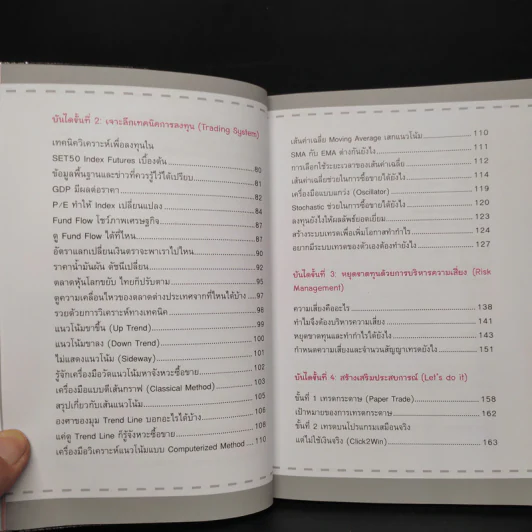 บันไดขั้นที่ 2: เจาะลึกเทคนิคการลงทุน (Trading System)
เทคนิควิเคราะห์เพื่อลงทุนใน
SET50 Index Futures เบื้องต้น 80
ข้อมูลพื้นฐานและข่าวที่ควรรู้ไว้ได้เปรียบ 81
GDP มีผลต่อราคา 82
P/E ทำให้ Index เปลี่ยนแปลง 84
Fund Flow โชว์ภาพเศรษฐกิจ 87
ดู Fund Flow ได้ที่ไหน 87
อัตราแลกเปลี่ยนเงินตราจะพาเราไปไหน 90
ราคาน้ำมันผัน ดัชนีเปลี่ยน 92
ตลาดหุ้นโลกขยับ ไทยก็ปรับตาม 95
ดูความเคลื่อนไหวของตลาดต่างประเทศจากที่ไหนได้บ้าง 97
รวยด้วยการวิเคราะห์ทางเทคนิค 98
แนวโน้มขาขึ้น (Up Trend) 99
แนวโน้มขาลง (Down Trend) 100
ไม่แสดงแนวโน้ม (Sideway) 101
รู้จักเครื่องมือวัดแนวโน้มหาจังหวะซื้อขาย 102
เครื่องมือแบบตีเส้นกราฟ (Classical Method) 103
สรุปเกี่ยวกับเส้นแนวโน้ม 105
องศาของมุม Trend Line บอกอะไรได้บ้าง 106
แค่ดู Trend Line ก็รู้จังหวะซื้อขาย 108
เครื่องมือวิเคราะห์แนวโน้มแบบ Computerized Method 110
เส้นค่าเฉลี่ย Moving Average เสกแนวโน้ม 110
SMA กับ EMA ต่างกันยังไง 111
การเลือกใช้ระยะเวลาของเส้นค่าเฉลี่ย 112
เส้นค่าเฉลี่ยช่วยในการซื้อขายได้ยังไง 114
เครื่องมือแบบแกว่ง (Oscillator) 119
Stochastic ช่วยในการซื้อขายได้ยังไง 120
ลงทุนยังไงให้ผลลัพธ์ยอดเยี่ยม 123
สร้างระบบเทรดเพื่อเพิ่มโอกาสทำกำไร 124
อยากมีระบบเทรดของตัวเองต้องทำยังไง 127
บันไดขั้นที่ 3: หยุดขาดทุนด้วยการบริหารความเสี่ยง (Risk
Management)
ความเสี่ยงคืออะไร 138
ทำไมจึงต้องบริหารความเสี่ยง 141
หยุดขาดทุนและทำกำไรได้ยังไง 143
กำหนดความเสี่ยงและจำนวนสัญญาเทรดยังไง 151
บันไดขั้นที่ 4: สร้างเสริมประสบการณ์ (Let's do it)
ขั้นที่ 1 เทรดกระดาษ (Paper Trade) 158
เป้าหมายของการเทรดกระดาษ 162
ขั้นที่ 2 เทรดบนโปรแกรมเสมือนจริง
แต่ไม่ใช้เงินจริง (Click2Win) 163